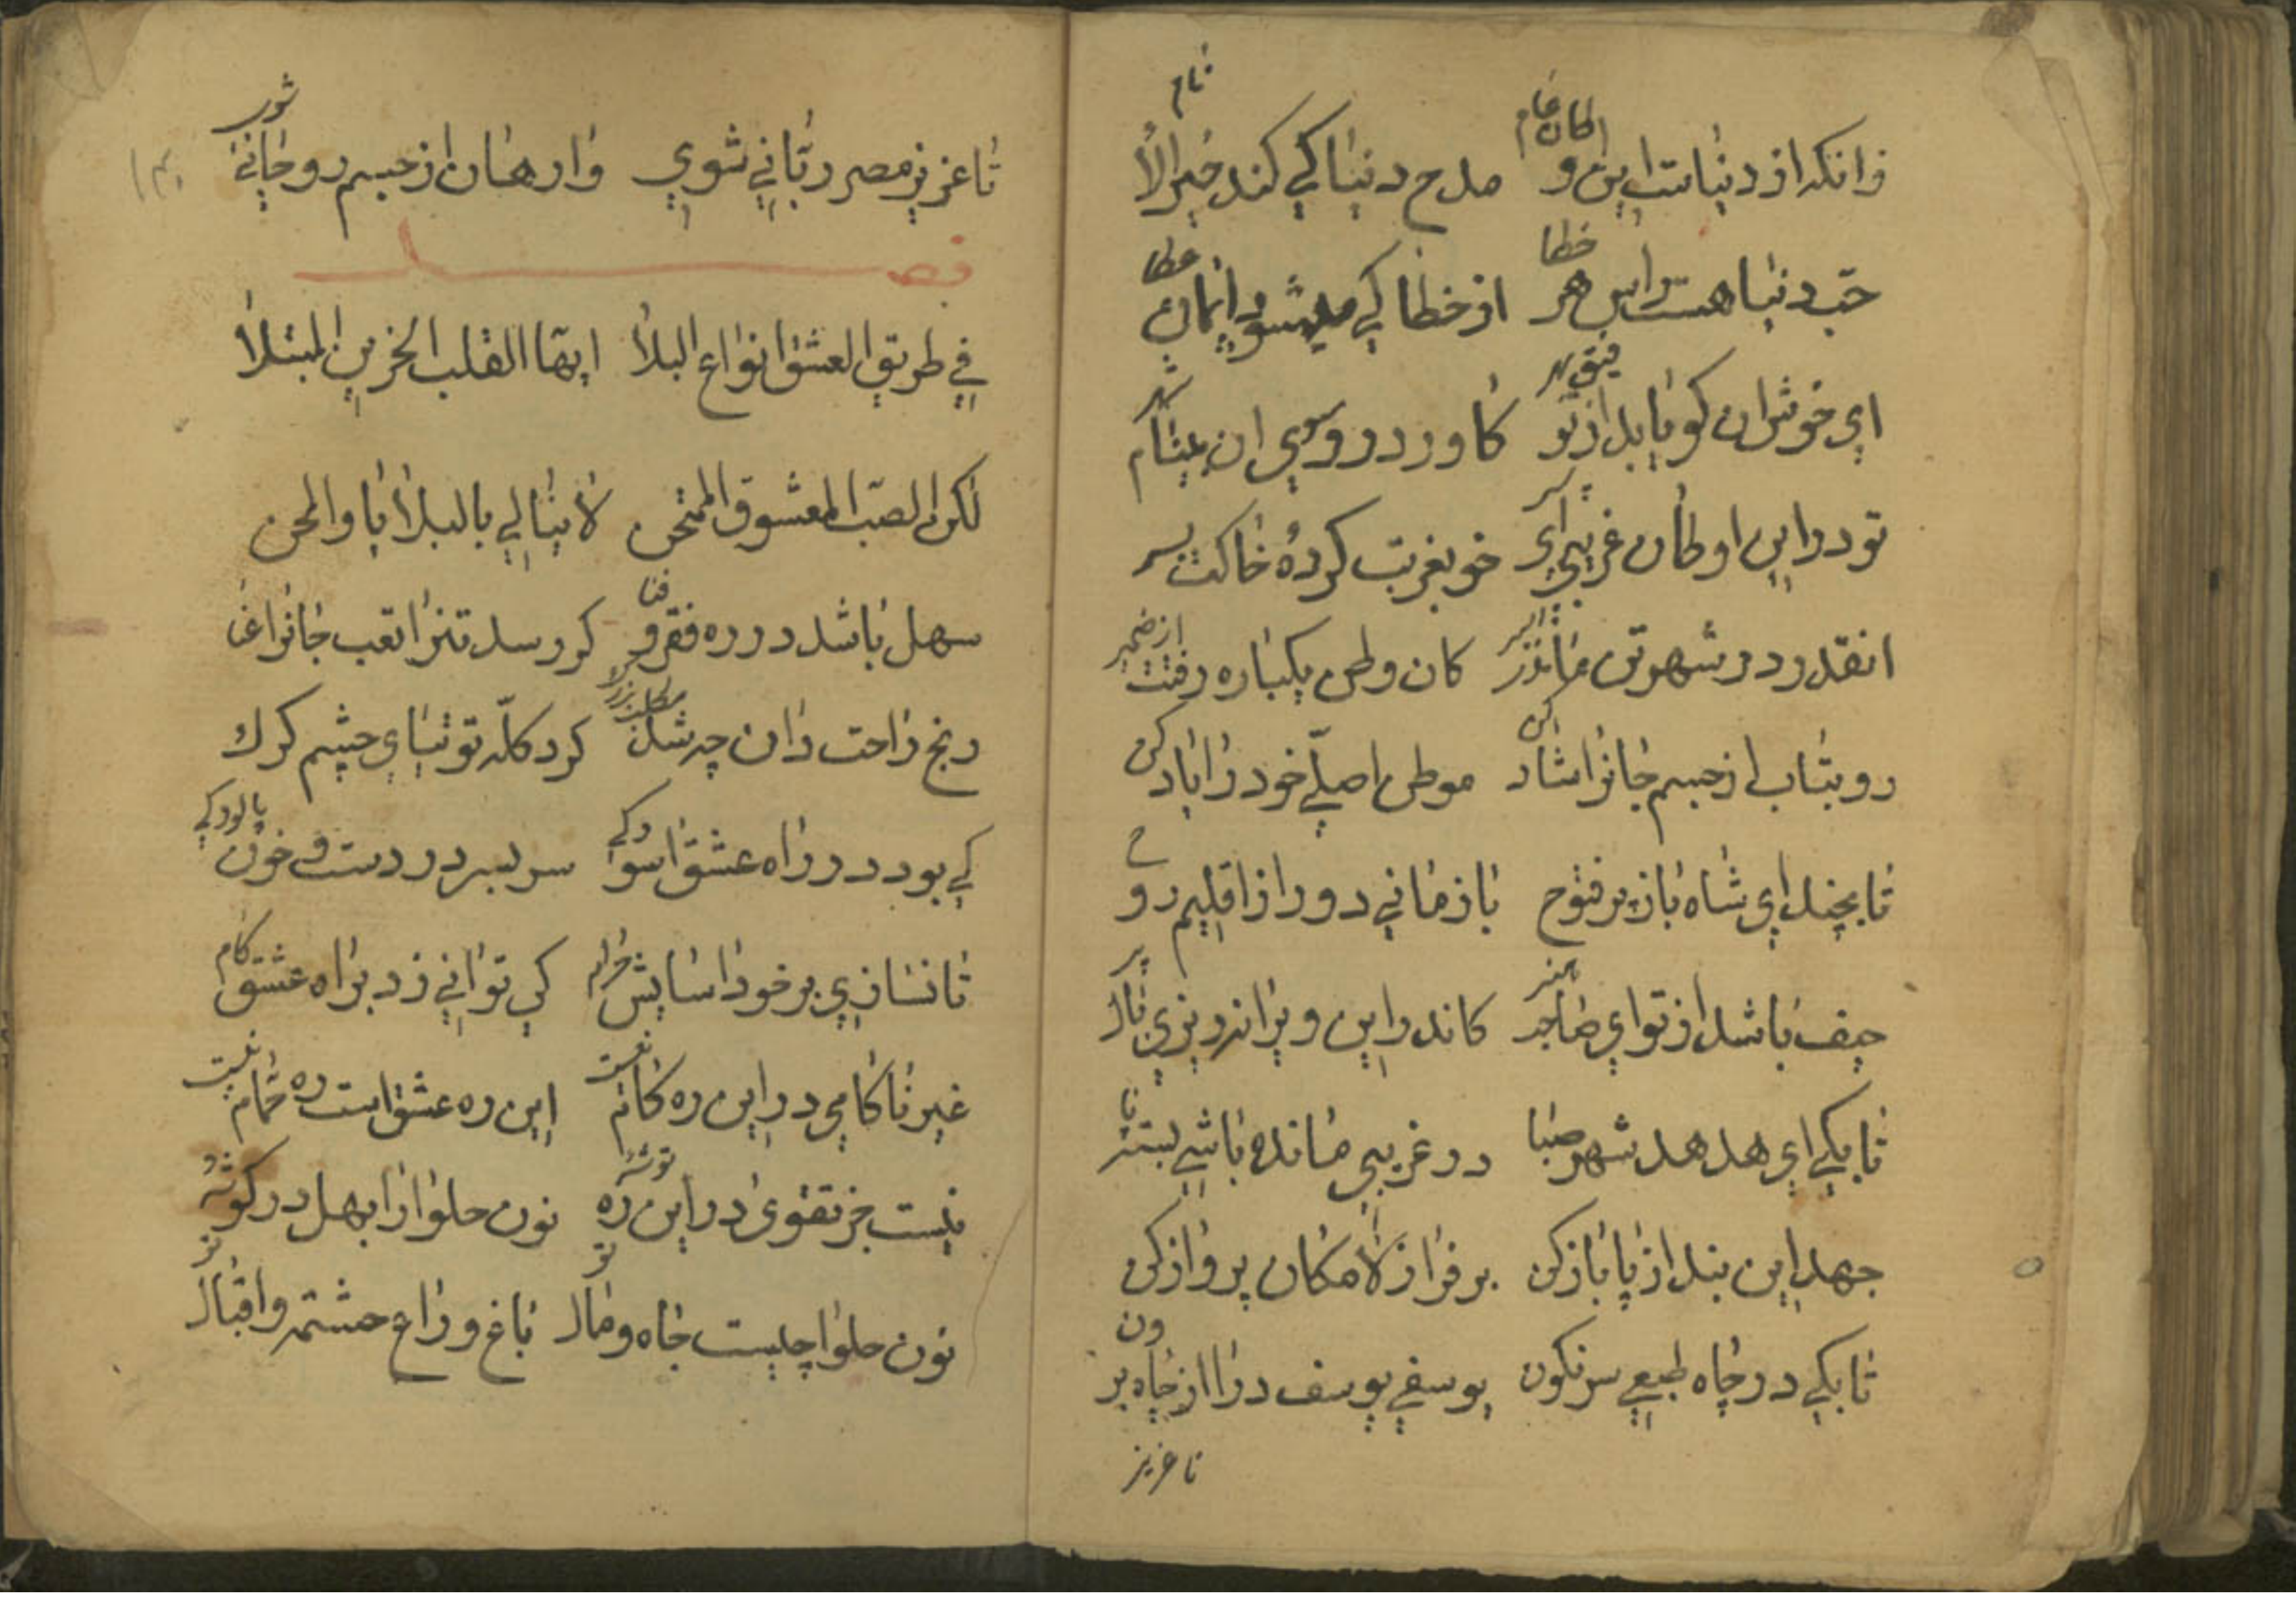 زانکه از دنیاست این اوطان تمام مدح دنیا کی کند خیر الانام
حبّ دنیا هست راس هر خطا از خطا کی میشود ایمان عطا
ای خوش آن کو یابد از توفیق بهر کاورد رو سوی آن بینام شهر
تو در این اوطان غریبی ای پسر خو بغربت کردهٔ خاکت بسر
انقدر در شهر تن ماندی اسیر کان وطن یکباره رفتت از ضمیر
رو بتاب از جسم جانرا شاد کن موطن اصلی خود را یاد کن
تا بچند ای شاه باز پر فتوح باز مانی دور از اقلیم روح
حیف باشد از تو ای صاحب هنر کاندر این ویرانه ریزی بال و پر
تا بکی ای هدهد شهر صبا در غریبی مانده باشی بسته پا
جهد این بند از پا باز کن بر فراز لامکان پرواز کن
تا بکی در چاه طبعی سرنکون یوسفی یوسف درا از چاه برون
تا عزیز
تا عزیز مصر ربّانی شوی وارهان از جسم روحانی شوی
فصل
فی طریق العشق انواع البلا ایّها القلب الحزین المبتلا
لکن الصبّ المعشوق الممتحن لا یبالی بالبلایا والمحن
سهل باشد در ره فقر و فنا کر رسد تنرا تعب جانرا عنا
رنج راحت دان چه شد مطلب بزرک کرد کلّه توتیای چشم کرک
کی بود در راه عشق اسوده کی سر بسر درد است و خون پالوده کی
تا نسازی بر خود اسایش حرام کی توانی زد براه عشق کام
غیر ناکامی در این ره کام نیست این ره عشق است ره حمام نیست
نیست جز تقوی در این ره توشهٔ نون حلوا را بهل در کوشهٔ
نون حلوا چیست جاه و مال تو باغ و راغ حشمت و اقبال تو